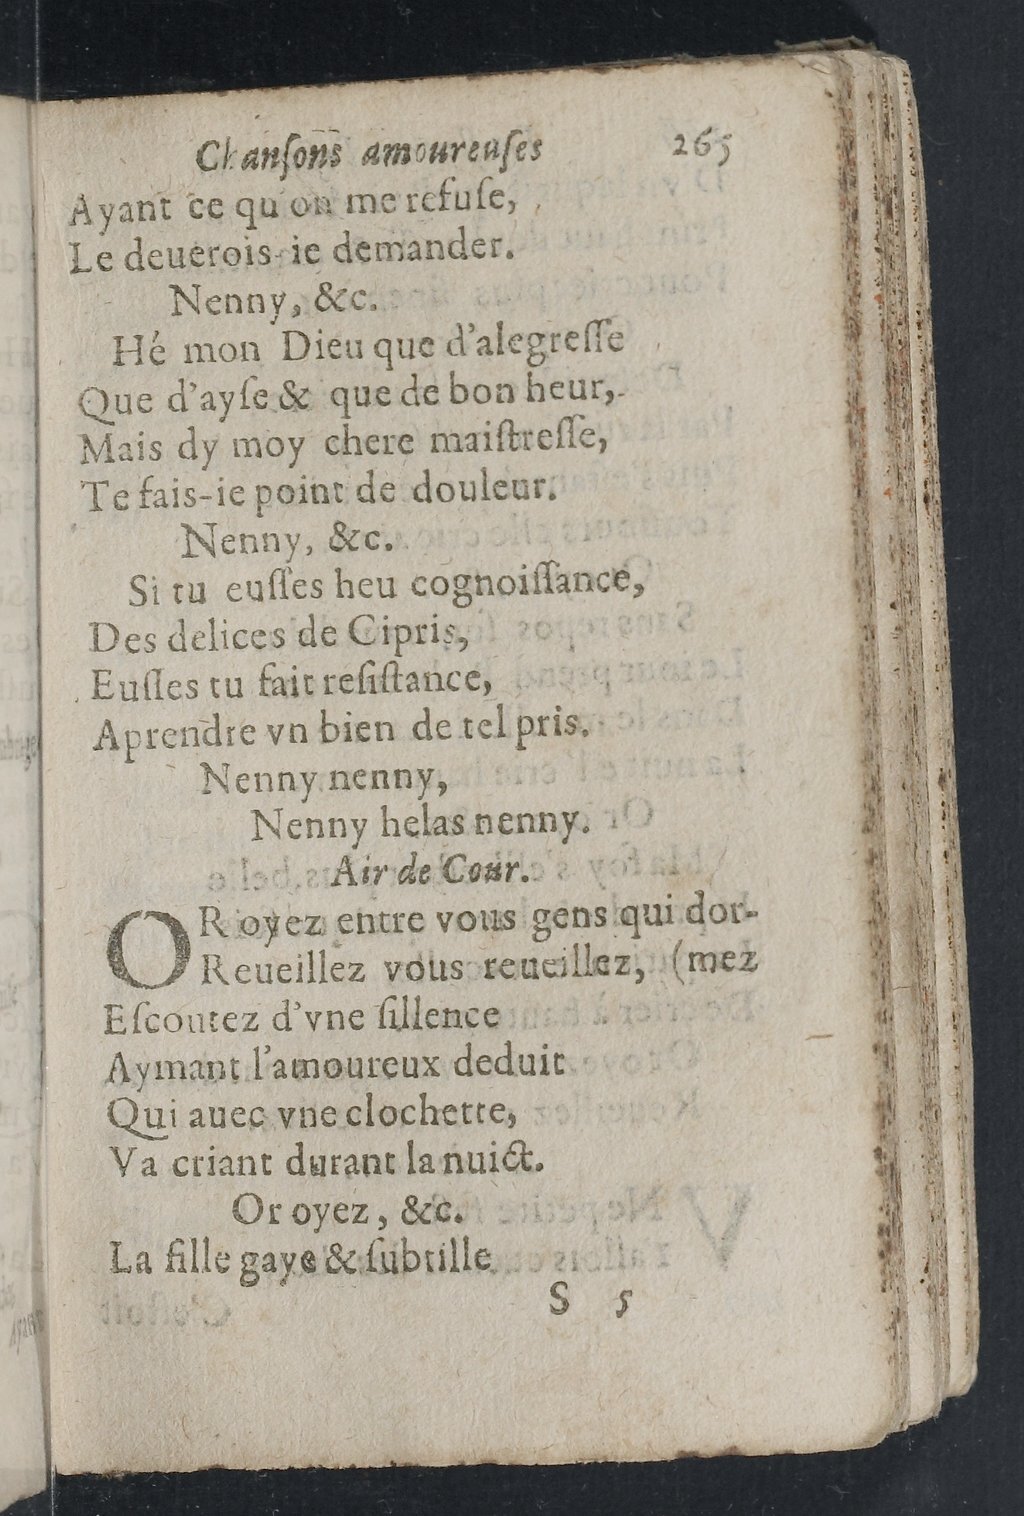 Chanſons amoureuſes 265
Ayant ce qu'on me refuſe,
Le deuerois-ie demander.
Nenny, &c.
Hé mon Dieu que d'alegreſſe
Que d'ayſe & que de bon heur,
Mais dy moy chere maiſtreſſe,
Te fais-ie point de douleur.
Nenny, &c.
Si tu euſſes heu cognoiſſance,
Des delices de Cipris,
Euſſes tu fait reſiſtance,
Aprendre vn bien de tel pris.
Nenny nenny,
Nenny helas nenny.
Air de Cour.
OR oyez entre vous gens qui dor-
Reueillez vous reueillez, (mez
Eſcoutez d'vne ſillence
Aymant l'amoureux deduit
Qui auec vne clochette,
Va criant durant la nuict.
Or oyez, &c.
La fille gaye & ſubtille
S 5